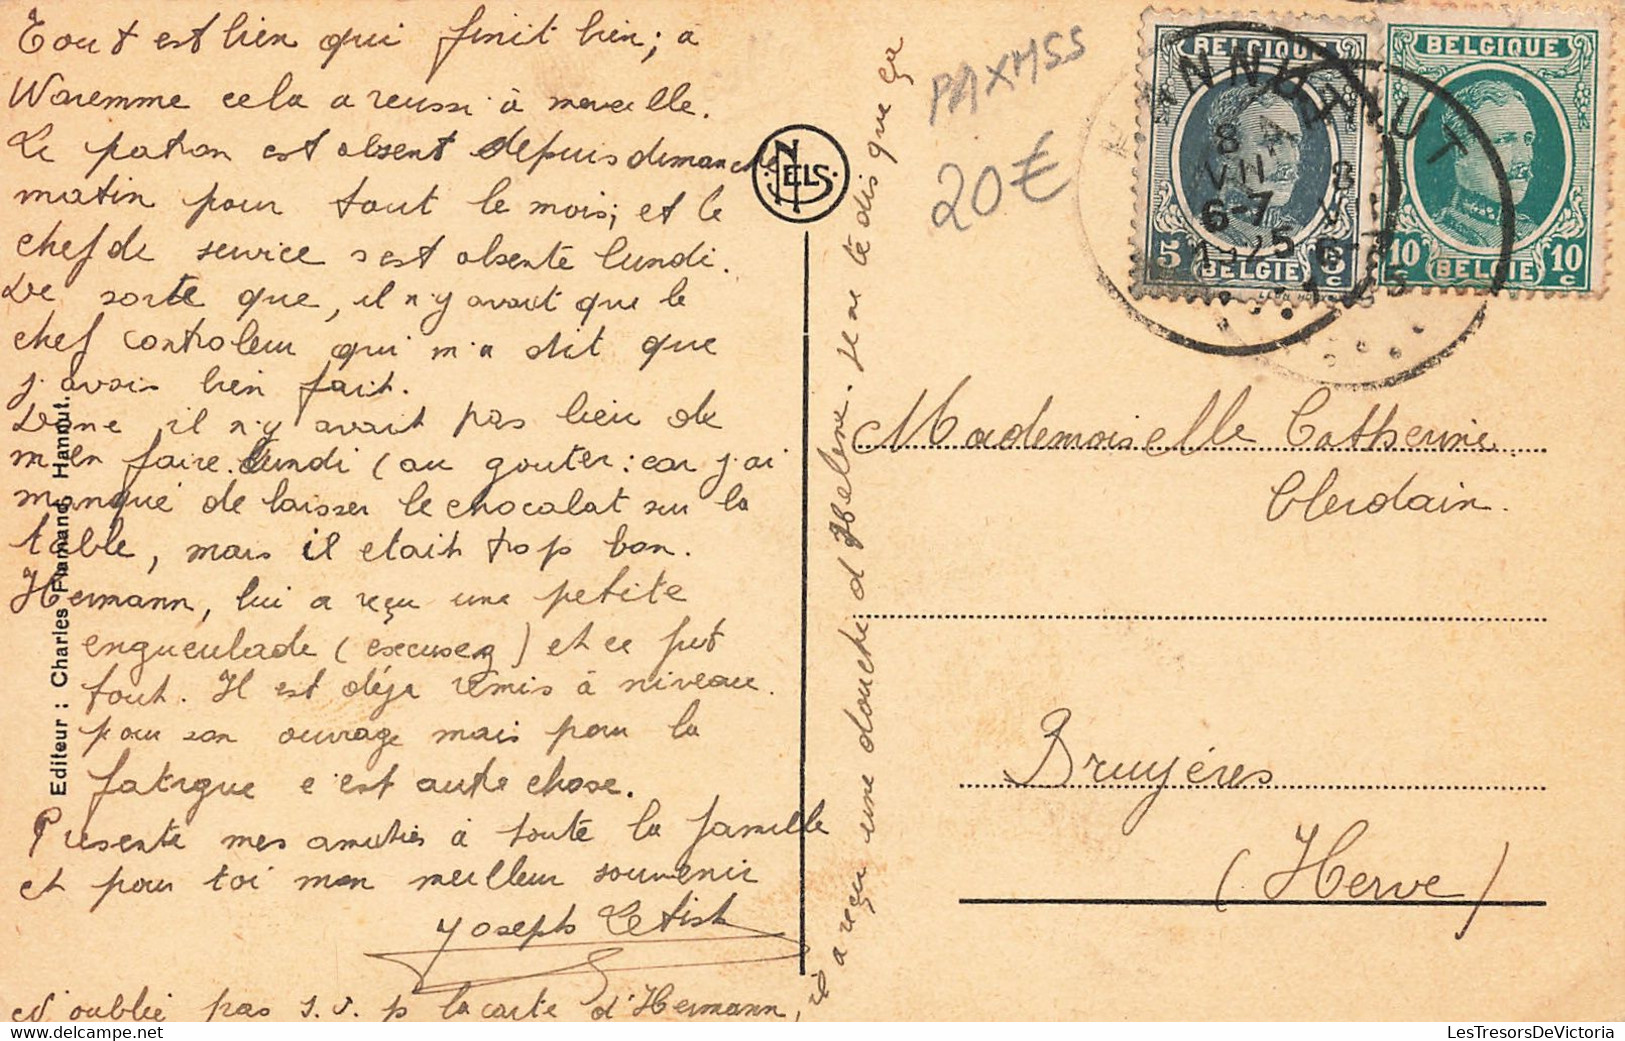 Tout est bien qui finit bien; à
Waremme cela a reussi à merveille.
Le patron est absent depuis dimanche
matin pour tout le mois; et le
chef de service s'est absenté lundi.
De sorte que, il n'y avait que le
chef controleur qui m'a dit que
j'avais bien fait.
Donc il n'y avait pas lieu de
m'en faire. Lundi (au gouter: car j'ai
manqué de laisser le chocolat sur la
table, mais il etait trop bon.
Hermann, lui a reçu une petite
engueulade (excusez) et ce fut
tout. Il est déja remis à niveau
pour son ouvrage mais pour la
fatigue c'est autre chose.
Presente mes amitiés à toute la famille
et pour toi mon meilleur souvenir
Joseph Letist
N'oublie pas s.v.p la carte d'Hermann,
il a reçu une douche d'Helene. Je ne te dis que ça
Editeur : Charles Flamand, Hannut.
NELS
PAXHSS
20€
BELGIQUE
5 BELGIE 5
c
BELGIQUE
10 BELGIE 10
c c
HANNUT
8
VII
6-7
1925
Mademoiselle Catherine
Clerdain.
Bruyères
(Herve)
LesTresorsDeVictoria